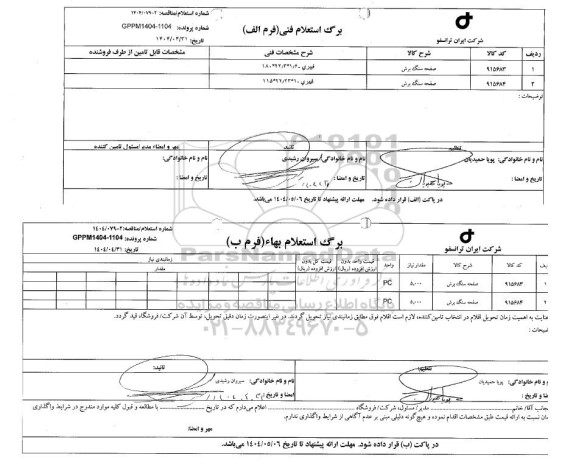 شماره استعلام/مناقصه: ۱۴۰۴/۰۷۹۰۲
برگ استعلام فنی(فرم الف)
شماره پرونده: GPPM1404-1104
تاریخ: ۱۴۰۴/۰۴/۳۱
شرکت ایران ترانسفو
ردیف کد کالا شرح کالا شرح مشخصات فنی مشخصات قابل تامین از طرف فروشنده
۱ ۹۱۵۶۸۳ صفحه سنگ برش
۲ ۹۱۵۶۸۴ صفحه سنگ برش
توضیحات :
تنظیم: تائید: مهر و امضاء مدیر/مسئول تامین کننده
نام و نام خانوادگی: پویا حمیدیان نام و نام خانوادگی: سیروان رشیدی نام و نام خانوادگی:
تاریخ و امضا : تاریخ و امضا : تاریخ و امضا :
در پاکت (الف) قرار داده شود. مهلت ارائه پیشنهاد تا تاریخ ۱۴۰۴/۰۵/۰۶ می‌باشد.
شماره استعلام/مناقصه: ۱۴۰۴/۰۷۹۰۲
برگ استعلام بهاء(فرم ب)
شماره پرونده: GPPM1404-1104
تاریخ: ۱۴۰۴/۰۴/۳۱
شرکت ایران ترانسفو
ردیف کد کالا شرح کالا مقدار نیاز واحد قیمت واحد بدون ارزش افزوده (ریال) قیمت کل بدون ارزش افزوده (ریال) زمانبندی نیاز
مقدار
۱ ۹۱۵۶۸۳ صفحه سنگ برش ۵,۰۰۰ PC
۲ ۹۱۵۶۸۴ صفحه سنگ برش ۵,۰۰۰ PC
ParsNamadData
پایگاه اطلاع رسانی مناقصه و مزایده
۰۲۱-۸۸۳۴۹۶۷۰-۵
عنایت به اهمیت زمان تحویل اقلام در انتخاب تامین‌کننده؛ لازم است اقلام فوق مطابق زمانبندی نیاز تحویل گردند. در غیر اینصورت زمان دقیق تحویل، توسط آن شرکت/ فروشگاه قید گردد.
توضیحات:
تنظیم: تائید:
نام و نام خانوادگی: پویا حمیدیان نام و نام خانوادگی: سیروان رشیدی
تاریخ و امضا : تاریخ و امضا :
اینجانب آقا/ خانم مدیر/ مسئول، شرکت/ فروشگاه اعلام می‌دارم که در تاریخ با مطالعه و قبول کلیه موارد مندرج در شرایط واگذاری
نسبت به ارائه قیمت طبق مشخصات اقدام نموده و هیچ‌گونه دلیلی مبنی بر عدم آگاهی از شرایط واگذاری ندارم.
مهر و امضا
در پاکت (ب) قرار داده شود. مهلت ارائه پیشنهاد تا تاریخ ۱۴۰۴/۰۵/۰۶ می‌باشد.